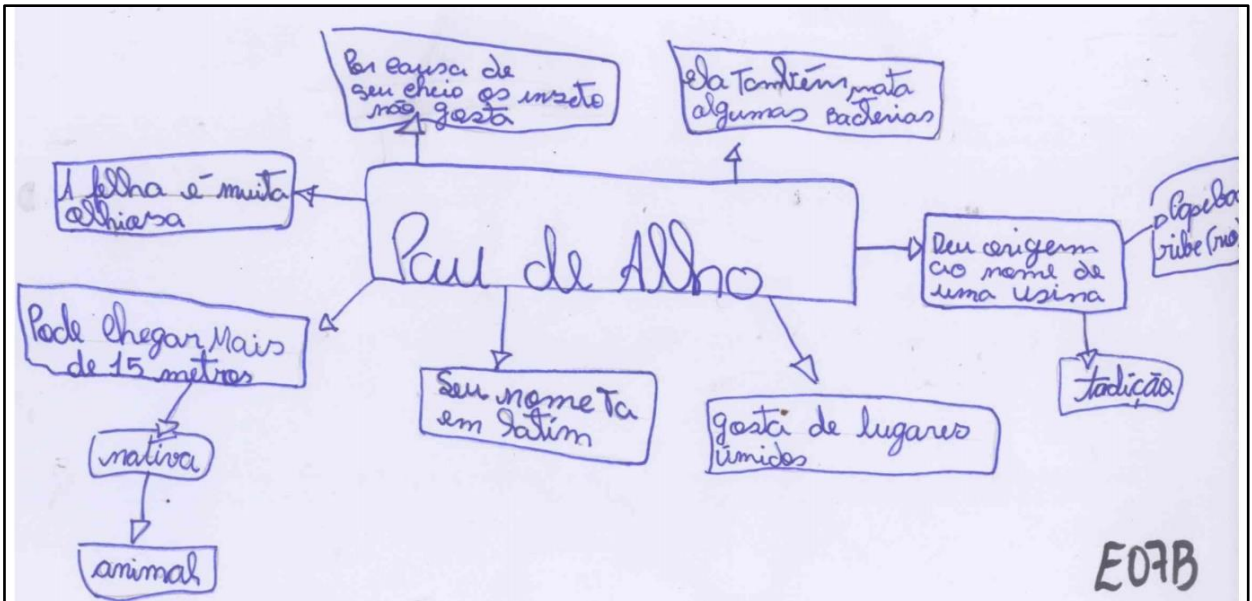 Por causa de
seu cheio os inseto
não gosta
ela também mata
algumas bacterias
A folha é muita
alhiosa
Pau de Alho
Deu origem
ao nome de
uma usina
Capiba
ribe (rio)
Pode chegar Mais
de 15 metros
tadição
Seu nome Ta
em latim
gosta de lugares
úmidos
nativa
animal
E07B